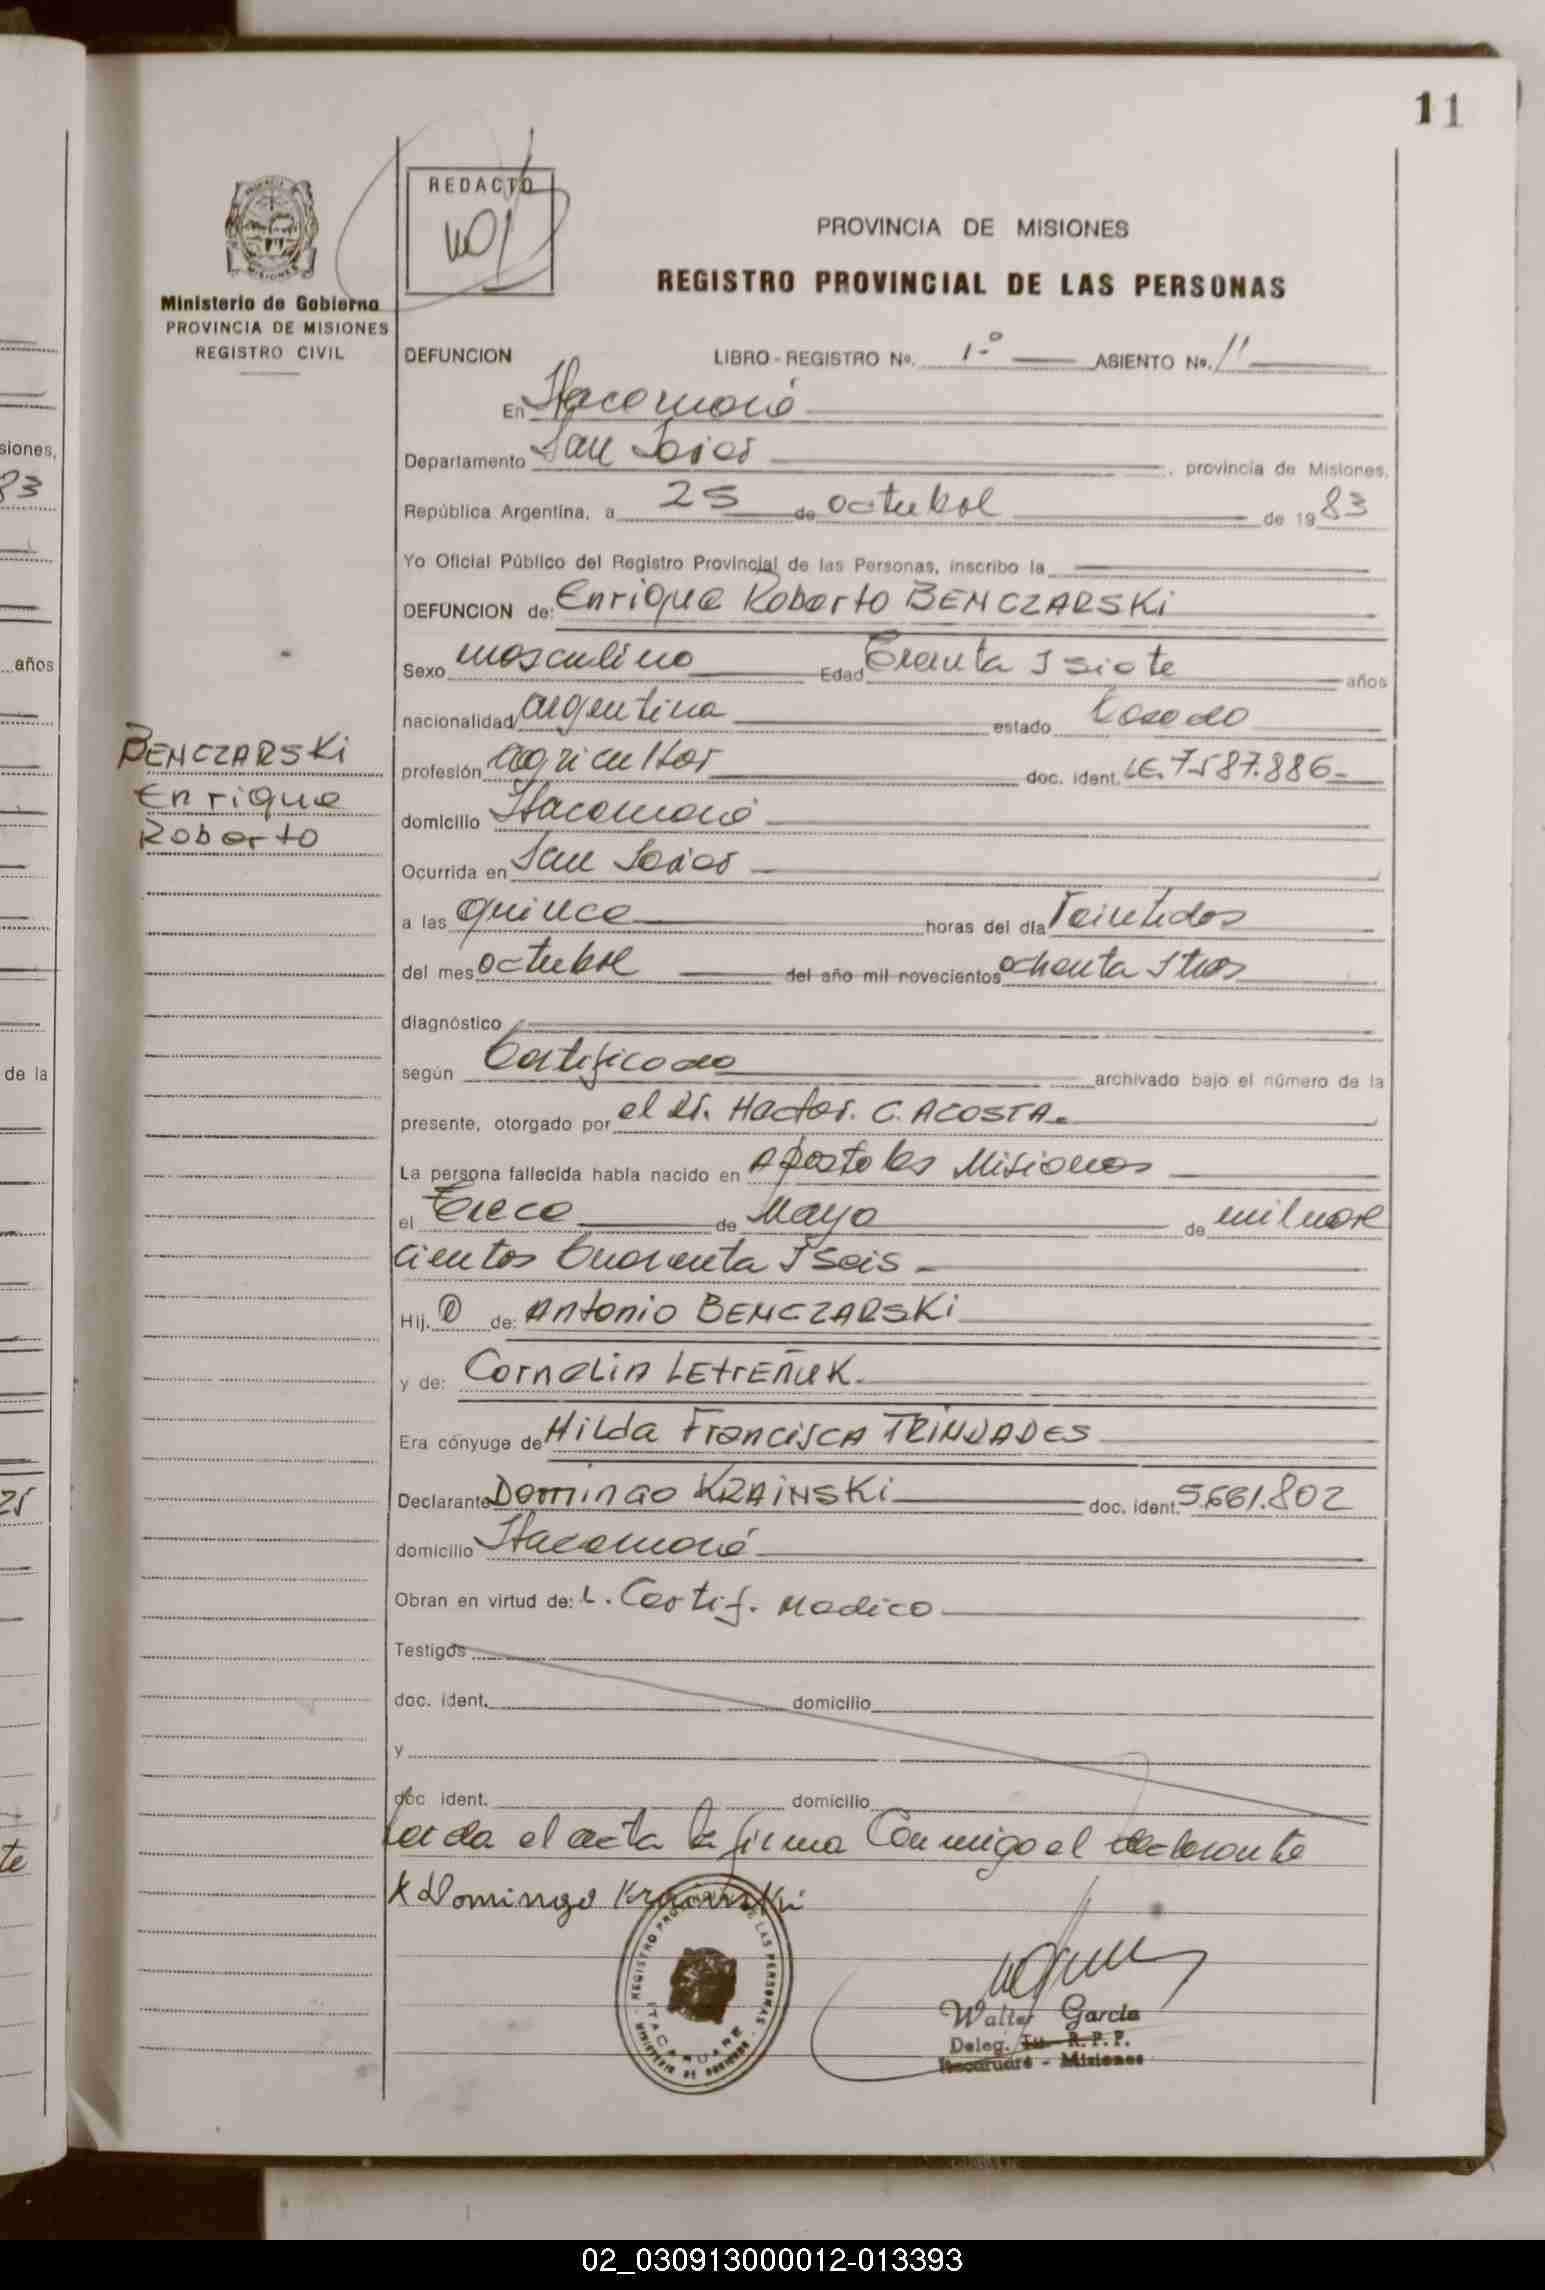 11
REDACTO
PROVINCIA DE MISIONES
REGISTRO PROVINCIAL DE LAS PERSONAS
Ministerio de Gobierno
PROVINCIA DE MISIONES
REGISTRO CIVIL
DEFUNCION LIBRO - REGISTRO Nº. 1-º ASIENTO Nº. 11
En Itacaruaré
Departamento San Javier, provincia de Misiones,
República Argentina, a 25 de octubre de 1983
Yo Oficial Público del Registro Provincial de las Personas, inscribo la
DEFUNCION de: Enrique Roberto BENCZARSKi
Sexo masculino Edad Treinta y siete años
nacionalidad argentina estado Casado
BENCZARSKi
Enrique
Roberto
profesión agricultor doc. ident. LE. 7.587.886-
domicilio Itacaruaré
Ocurrida en San Javier
a las quince horas del día Veintidos
del mes octubre del año mil novecientos ochenta y tres
diagnóstico
según Certificado archivado bajo el número de la
presente, otorgado por el Dr. Hector. C. ACOSTA.
La persona fallecida había nacido en Apostoles Misiones
el Trece de Mayo de mil nove
cientos Cuarenta y Seis -
Hij. o de: Antonio BENCZARSKi
y de: Cornelia LEtrEÑUK.
Era cónyuge de Hilda Francisca TRINDADES
Declarante Domingo KRAiNSKi doc. ident. 5.661.802
domicilio Itacaruaré
Obran en virtud de: L. Certif. Medico
Testigos
doc. ident. domicilio
y
doc ident. domicilio
Leida el acta la firma Conmigo el declarante
x Domingo Krainski
REGISTRO PROVINCIAL DE LAS PERSONAS
ITACARUARE
MINISTERIO DE GOBIERNO
Walter García
Deleg. Tit. R.P.P.
Itacaruaré - Misiones
siones,
83
años
de la
25
te
02_030913000012-013393